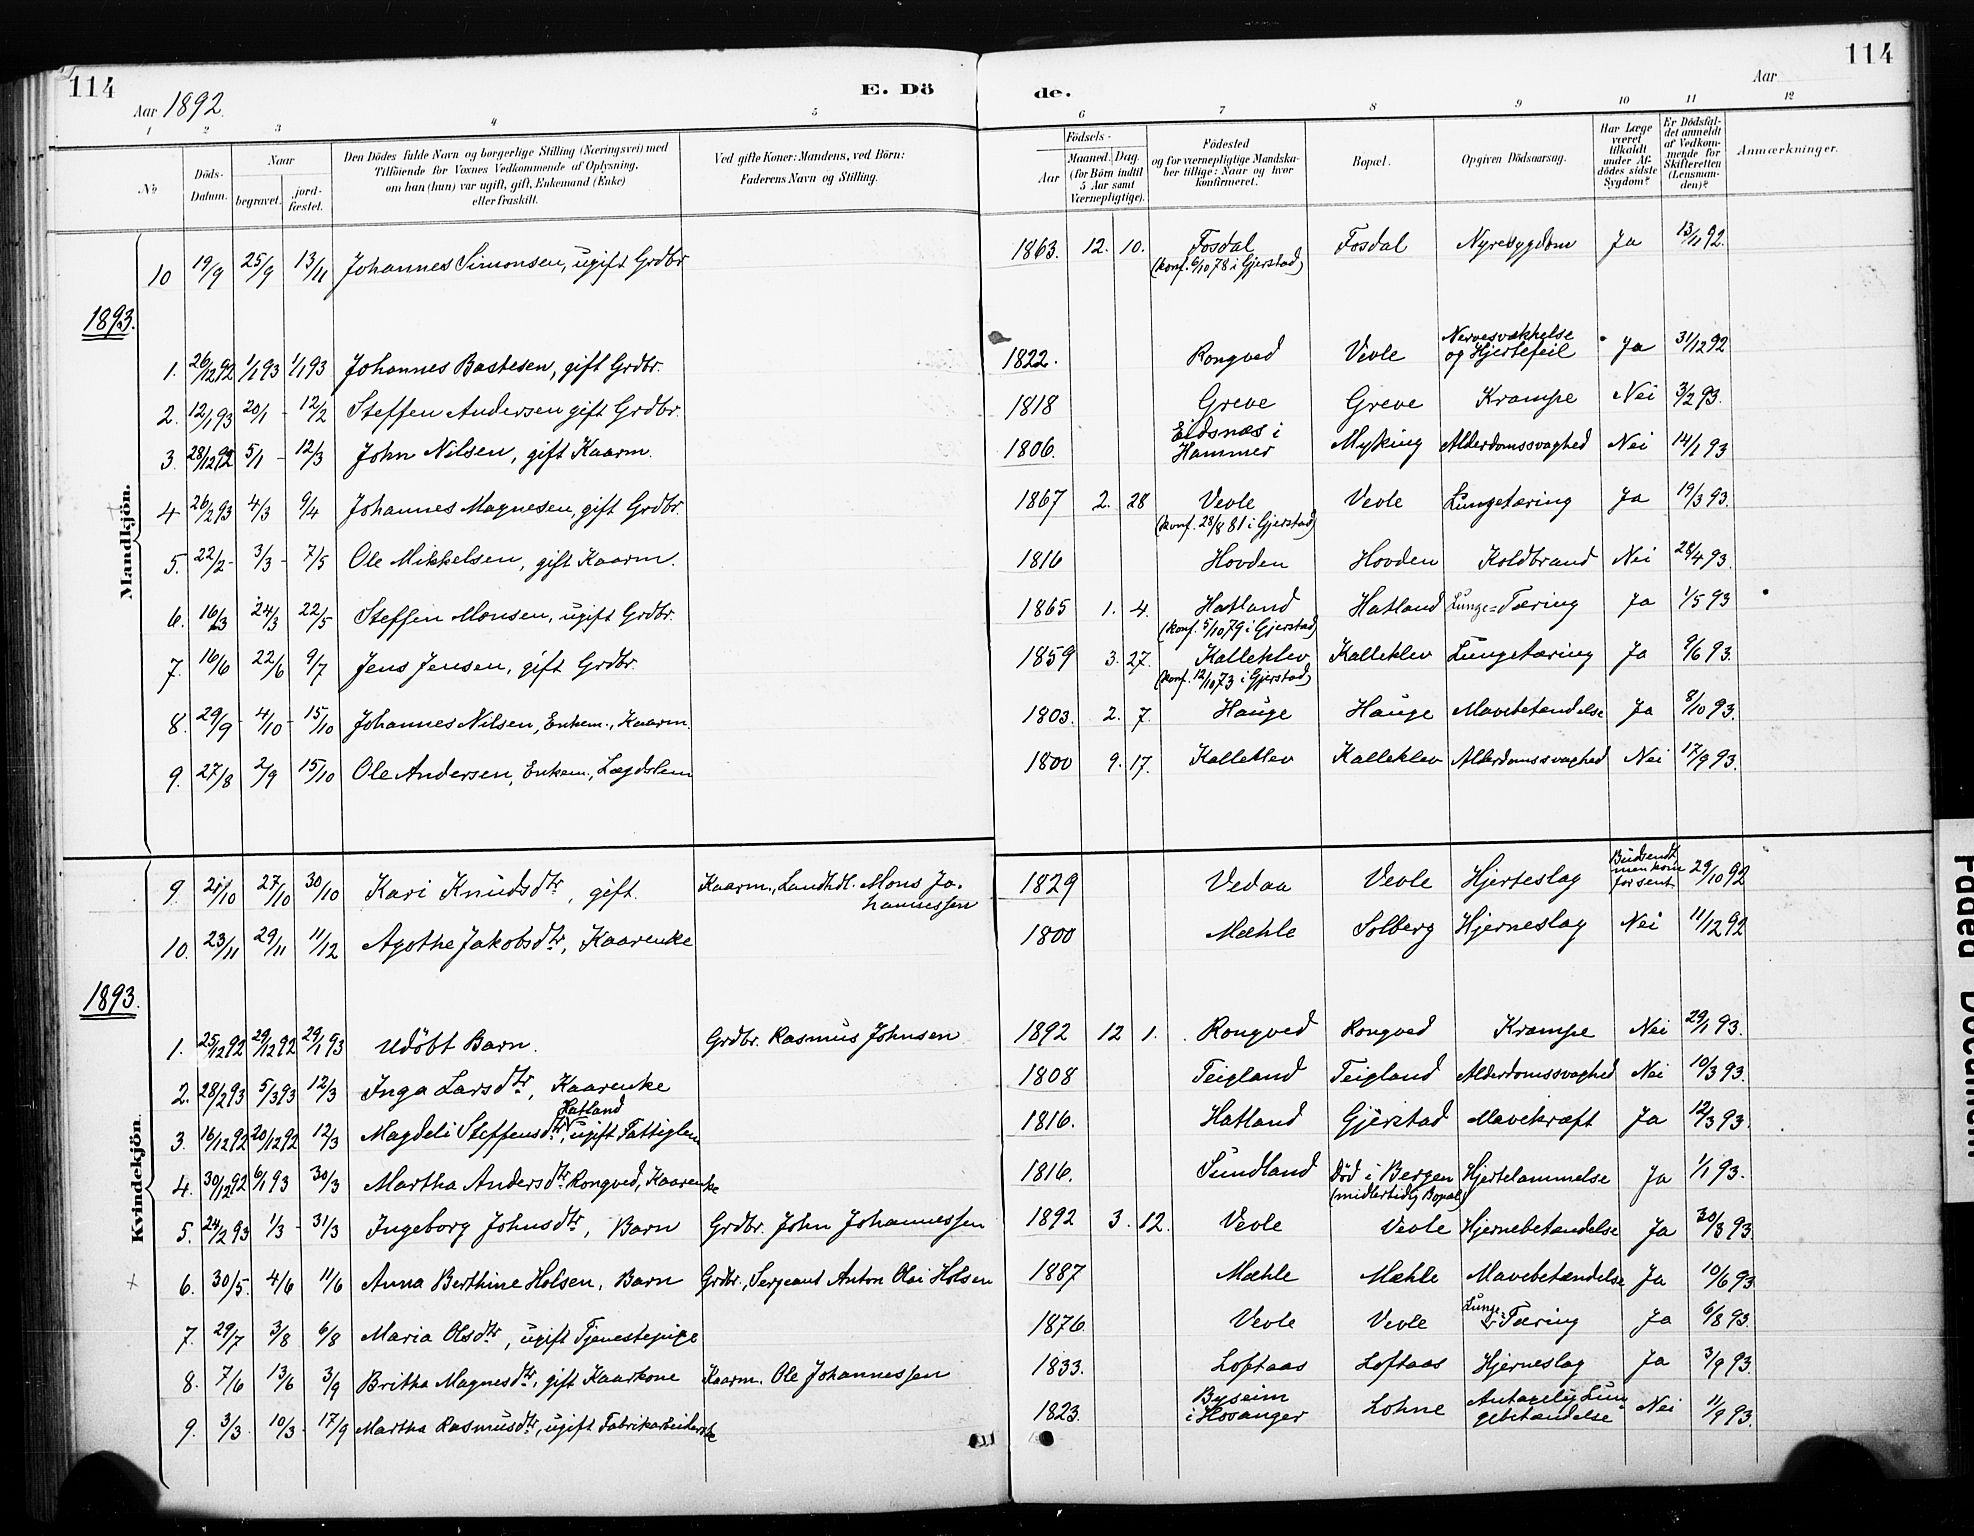 114
Aar 1892.
E. Dö
de.
Aar
114
1 2 3 4 5 6 7 8 9 10 11 12
No
Döds-Datum.
Naar
begravet.
jordfæstet.
Den Dödes fulde Navn og borgerlige Stilling (Næringsvei) med
Tilföiende for Voxnes Vedkommende af Oplysning,
om han (hun) var ugift, gift, Enkemand (Enke)
eller fraskilt.
Ved gifte Koner: Mandens, ved Börn:
Faderens Navn og Stilling.
Födsels-
Aar
Maaned. Dag.
(for Börn indtil
5 Aar samt
Værnepligtige).
Födested
og for værnepligtige Mandska-
ber tillige: Naar og hvor
konfirmeret.
Bopæl.
Opgiven Dödsaarsag.
Har Læge
været
tilkaldt
under Af-
dödes sidste
Sygdom?
Er Dödsfal-
det anmeldt
af Vedkom-
mende for
Skifteretten
(Lensman-
den)?
Anmærkninger.
Mandkjön.
10 19/9 25/9 13/11 Johannes Simonsen, ugift Grdbr 1863. 12. 10. Fosdal Fosdal Nyresygdom Ja 13/11 92.
(konf. 6/10 78 i Gjerstad)
1893.
1. 26/12 92 1/1 93 1/1 93 Johannes Bastesen, gift Grdbr. 1822. Rongved Vevle Nervesvækkelse og Hjertefeil Ja 31/12 92
2. 12/1 93 20/1 - 12/2 Steffen Andersen gift Grdbr. 1818 Greve Greve Krampe Nei 3/2 93.
3. 28/12 92 5/1 - 12/3 John Nilsen, gift Kaarm. 1806. Eidsnæs i Hammer Myking Alderdomssvaghed Nei 14/1 93
4 26/2 93 4/3 9/4 Johannes Magnesen, gift Grdbr. 1867 2. 28 Vevle Vevle Lungetæring Ja 19/3 93.
(konf. 28/8 81 i Gjerstad)
5. 22/2 - 3/3 - 7/5 Ole Mikkelsen, gift Kaarm. 1816 Hovden Hovden Koldbrand Nei 28/4 93.
6. 16/3 24/3 22/5 Steffen Monsen, ugift Grdbr. 1865 1. 4. Hatland Hatland Lunge=Tæring Ja 1/5 93
(konf. 5/10 79 i Gjerstad)
7. 16/6 22/6 9/7 Jens Jensen, gift Grdbr. 1859 3. 27. Kalleklev Kalleklev Lungetæring Ja 9/6 93.
(konf. 12/10 73 i Gjerstad)
8. 29/9 - 4/10 - 15/10 Johannes Nilsen, Enkem., Kaarm. 1803. 2. 7. Hauge Hauge Mavebetændelse Ja 8/10 93.
9. 27/8 2/9 15/10 Ole Andersen, Enkem., Lægdslem 1800 9. 17. Kalleklev Kalleklev Alderdomssvaghed Nei 17/9 93.
Kvindekjön.
9. 21/10 27/10 30/10 Kari Knudsdtr, gift. Kaarm., Landhdl. Mons Johannessen 1829 Vedaa Vevle Hjerteslag Budsendt, men kom for sent 29/10 92
10. 23/11 29/11 11/12 Agothe Jakobsdtr, Kaarenke 1800 Mæhle Solberg Hjerneslag Nei 11/12 92
1893.
1. 25/12 92 29/12 92 29/1 93 Udöbt Barn. Grdbr. Rasmus Johnsen 1892 12 1. Rongved Rongved Krampe Nei 29/1 93.
2. 28/2 93 5/3 93 12/3 Inga Larsdtr, Kaarenke 1808 Teigland Teigland Alderdomssvaghed Nei 10/3 93.
Hatland
3. 16/12 92 20/12 92 12/3 Magdeli Steffensdtr, ugift Fattiglem 1816. Hatland Gjerstad Mavekræft Ja 12/3 93.
4. 30/12 92 6/1 93 30/3 Martha Andersdtr Rongved, Kaarenke 1816. Sundland Död i Bergen Hjertelammelse Ja 1/1 93.
(midlertidig Bopæl)
5. 24/2 93 1/3 - 31/3 Ingeborg Johnsdtr, Barn Grdbr. John Johannessen 1892 3. 12. Vevle Vevle Hjernebetændelse Ja 30/3 93.
6. 30/5. 4/6 11/6 Anna Berthine Holsen, Barn Grdbr., Sergeant Anton Olai Holsen 1887 Mæhle Mæhle Mavebetændelse Ja 10/6 93.
7. 29/7 3/8 6/8 Maria Olsdtr, ugift Tjenestepige 1876. Vevle Vevle Lunge-Tæring Ja 6/8 93.
8. 7/6 13/6 3/9 Britha Magnesdtr, gift Kaarkone Kaarm. Ole Johannessen 1833. Loftaas Loftaas Hjerneslag Ja 3/9 93.
9. 3/3 10/3 17/9 Martha Rasmusdtr, ugift Fabrikarbeiderske 1823. Byseim i Hosanger Lohne Antagelig Lungebetændelse Nei 11/9 93.
Faded Document